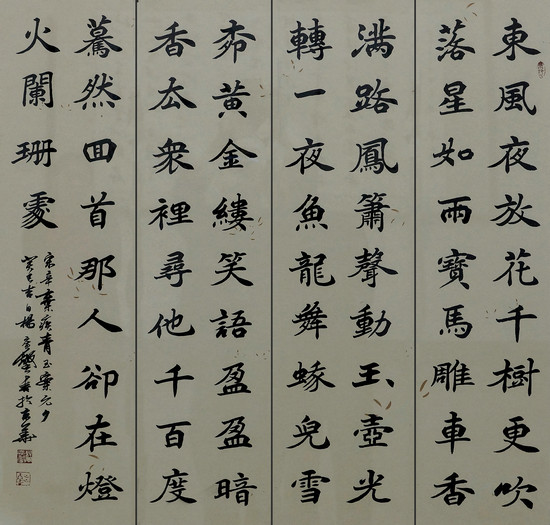 東風夜放花千樹更吹
落星如雨寶馬雕車香
满路鳳簫聲動玉壺光
轉一夜魚龍舞蛾兒雪
柳黃金縷笑語盈盈暗
香去衆裡尋他千百度
驀然回首那人卻在燈
火闌珊處
宋辛棄疾青玉案元夕
癸巳吉日楊書於京華